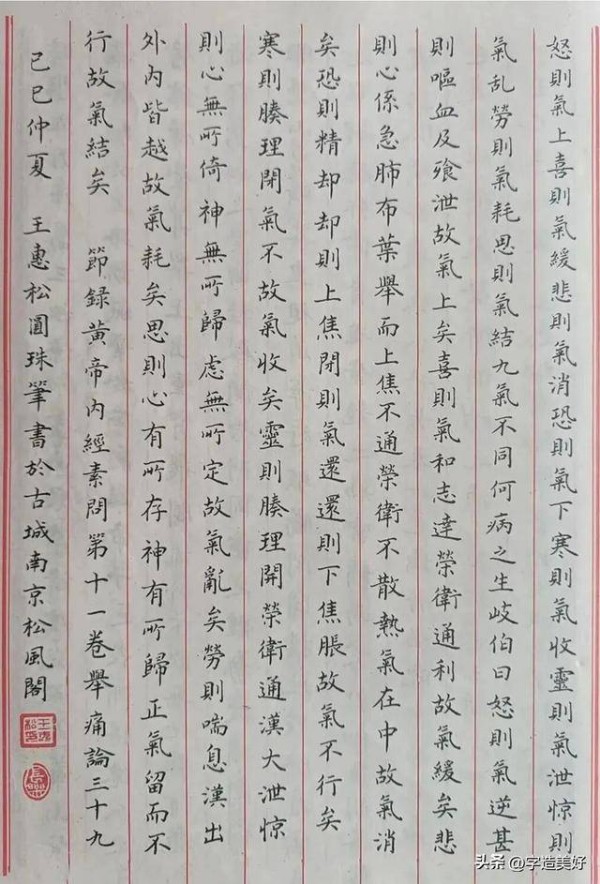 怒則氣上喜則氣緩悲則氣消恐則氣下寒則氣收靈則氣泄惊則
氣乱勞則氣耗思則氣結九氣不同何病之生岐伯曰怒則氣逆甚
則嘔血及飱泄故氣上矣喜則氣和志達榮衛通利故氣緩矣悲
則心係急肺布葉舉而上焦不通榮衛不散熱氣在中故氣消
矣恐則精却却則上焦閉則氣還還則下焦脹故氣不行矣
寒則腠理閉氣不故氣收矣靈則腠理開榮衛通漢大泄惊
則心無所倚神無所歸慮無所定故氣亂矣勞則喘息漢出
外內皆越故氣耗矣思則心有所存神有所歸正氣留而不
行故氣結矣 節録黃帝內經素問第十一卷舉痛論三十九
己巳仲夏 王惠松圓珠筆書於古城南京松風閣
头条 @字造美好